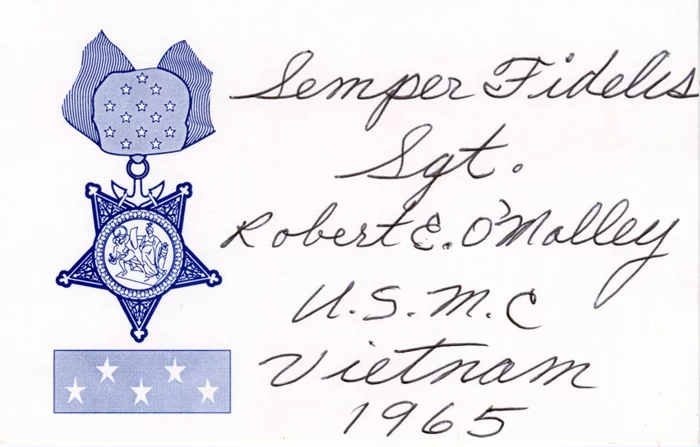 Semper Fidelis
Sgt.
Robert E. O'Malley
U.S.M.C
Vietnam
1965